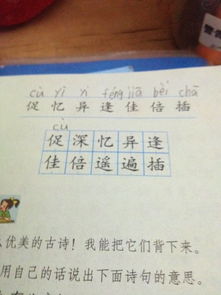 cù yì yì féng jiā bèi chā
促 忆 异 逢 佳 倍 插
cù
促 深 忆 异 逢
佳 倍 遥 遍 插
优美的古诗！我能把它们背下来。
用自己的话说出下面诗句的意思。